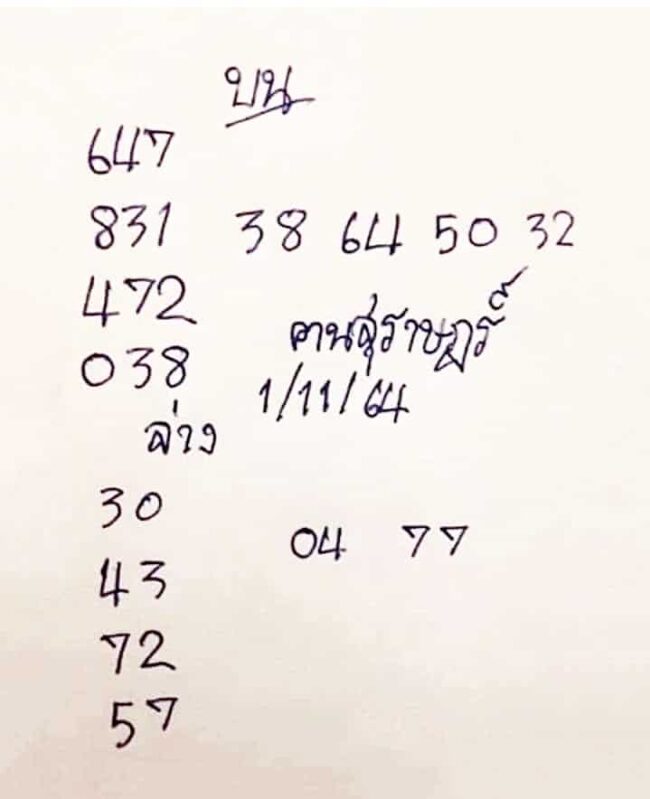 บน
647
831 38 64 50 32
472
คนสุราษฎร์
038
1/11/64
ล่าง
30
04 77
43
72
57